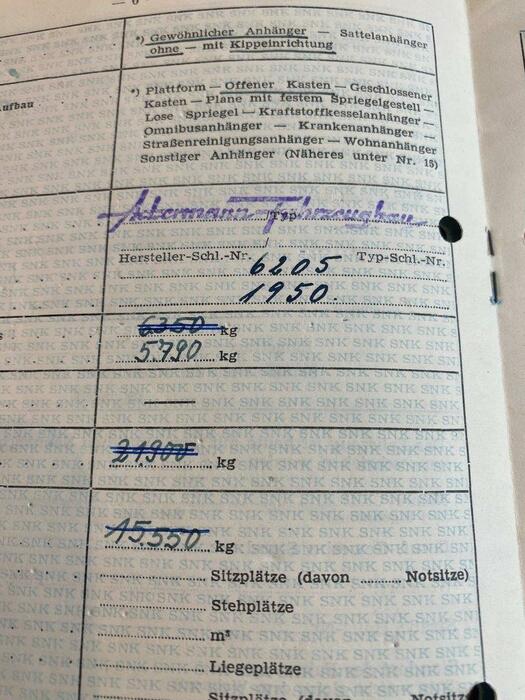 — 6
*) Gewöhnlicher Anhänger — Sattelanhänger
ohne — mit Kippeinrichtung
ufbau
*) Plattform — Offener Kasten — Geschlossener
Kasten — Plane mit festem Spriegelgestell —
Lose Spriegel — Kraftstoffkesselanhänger —
Omnibusanhänger — Krankenanhänger —
Straßenreinigungsanhänger — Wohnanhänger
Sonstiger Anhänger (Näheres unter Nr. 15)
Ackermann-Fahrzeugbau
Typ
Hersteller-Schl.-Nr. 6205 Typ-Schl.-Nr.
1950.
s
6350 kg
5790 kg
21900 kg
15550 kg
Sitzplätze (davon Notsitze)
Stehplätze
m³
Liegeplätze
Sitzplätze (davon Notsitze